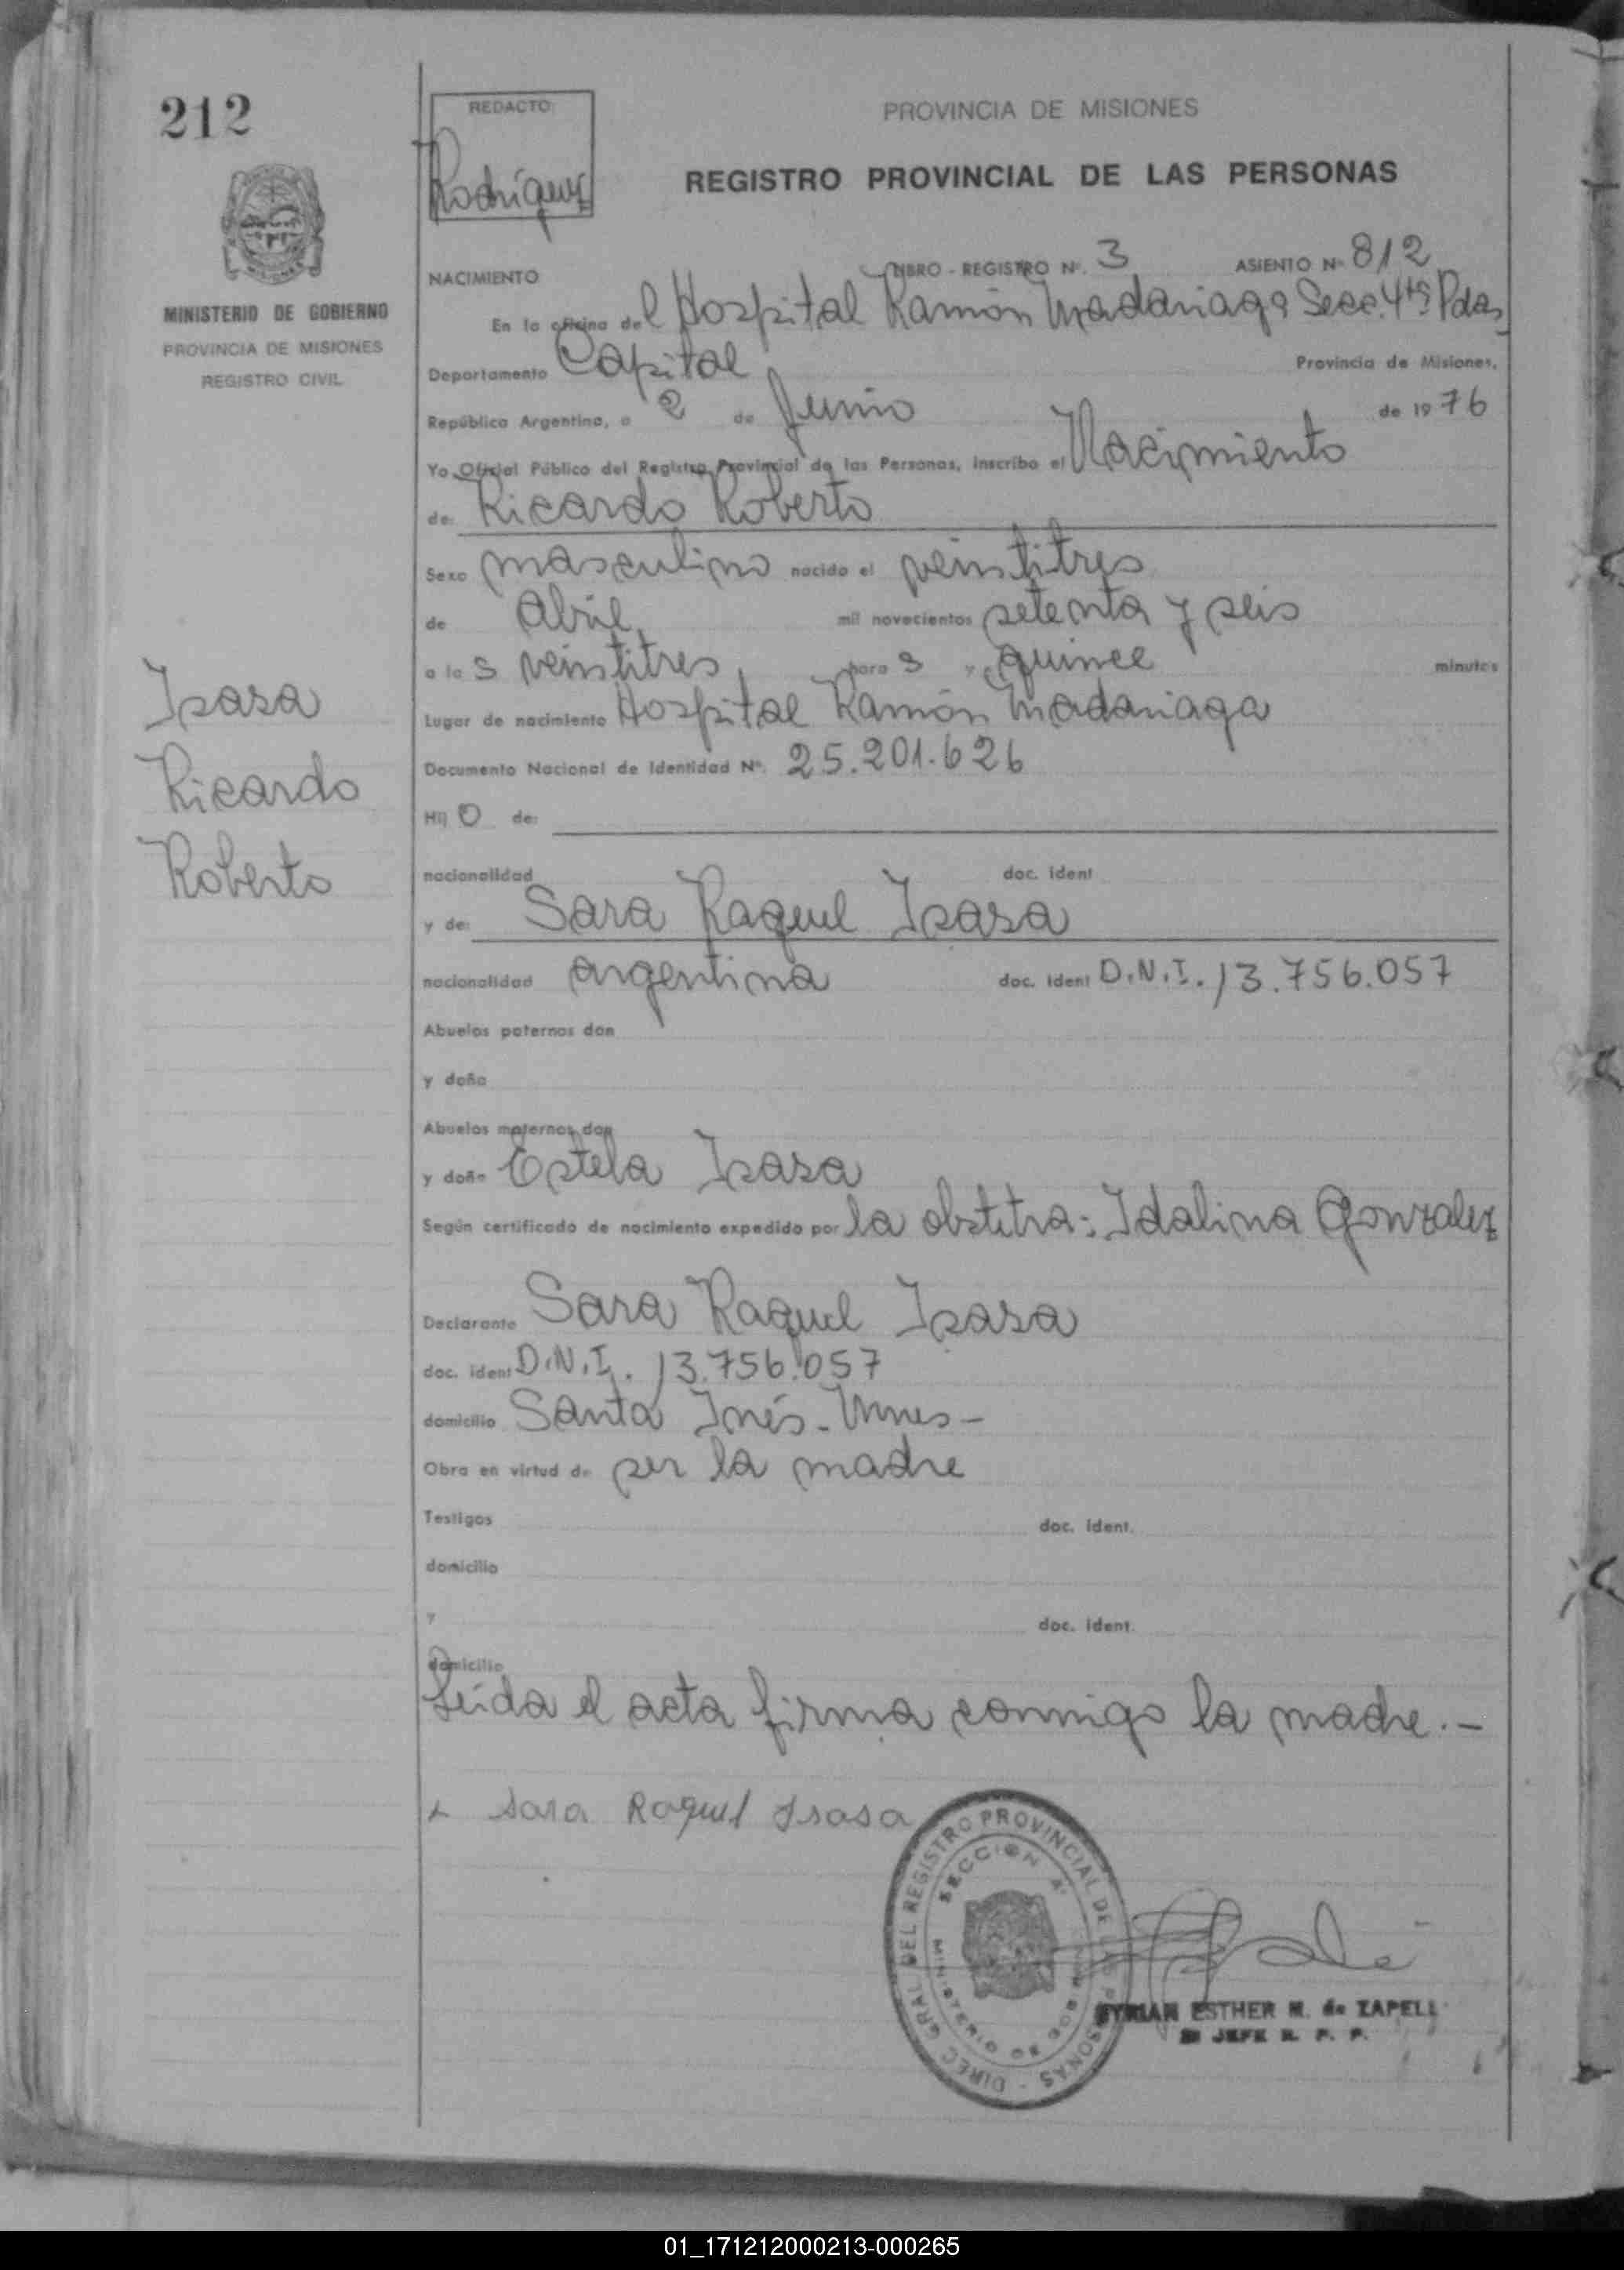 212
REDACTO:
Rodríguez
PROVINCIA DE MISIONES
REGISTRO PROVINCIAL DE LAS PERSONAS
MINISTERIO DE GOBIERNO
PROVINCIA DE MISIONES
REGISTRO CIVIL
NACIMIENTO LIBRO - REGISTRO Nº. 3 ASIENTO Nº 812
En la oficina del Hospital Ramón Madariaga Secc. 4ta Pdas
Departamento Capital Provincia de Misiones,
República Argentina, a 2 de Junio de 1976
Yo Oficial Público del Registro Provincial de las Personas, inscribo el Nacimiento
de: Ricardo Roberto
Sexo masculino nacido el veintitres
de Abril mil novecientos setenta y seis
a las veintitres horas y quince minutos
Lugar de nacimiento Hospital Ramón Madariaga
Documento Nacional de Identidad Nº. 25.201.626
Hijo de:
nacionalidad doc. ident
y de: Sara Raquel Isasa
nacionalidad argentina doc. ident D.N.I. 13.756.057
Abuelos paternos don
y doña
Abuelos maternos don
y doña Estela Isasa
Según certificado de nacimiento expedido por la obstetra: Idalina Gonzalez
Declarante Sara Raquel Isasa
doc. ident D.N.I. 13.756.057
domicilio Santa Inés -
Obra en virtud de ser la madre
Testigos doc. ident.
domicilio
y doc. ident.
domicilio
Leída el acta firma conmigo la madre.-
Sara Raquel Isasa
Isasa
Ricardo
Roberto
DIREC. GRAL DEL REGISTRO PROVINCIAL DE LAS PERSONAS
SECCION 4ª
MINISTERIO DE GOBIERNO
ESTHER M. de ZAPELL
JEFE R. P. P.
01_171212000213-000265